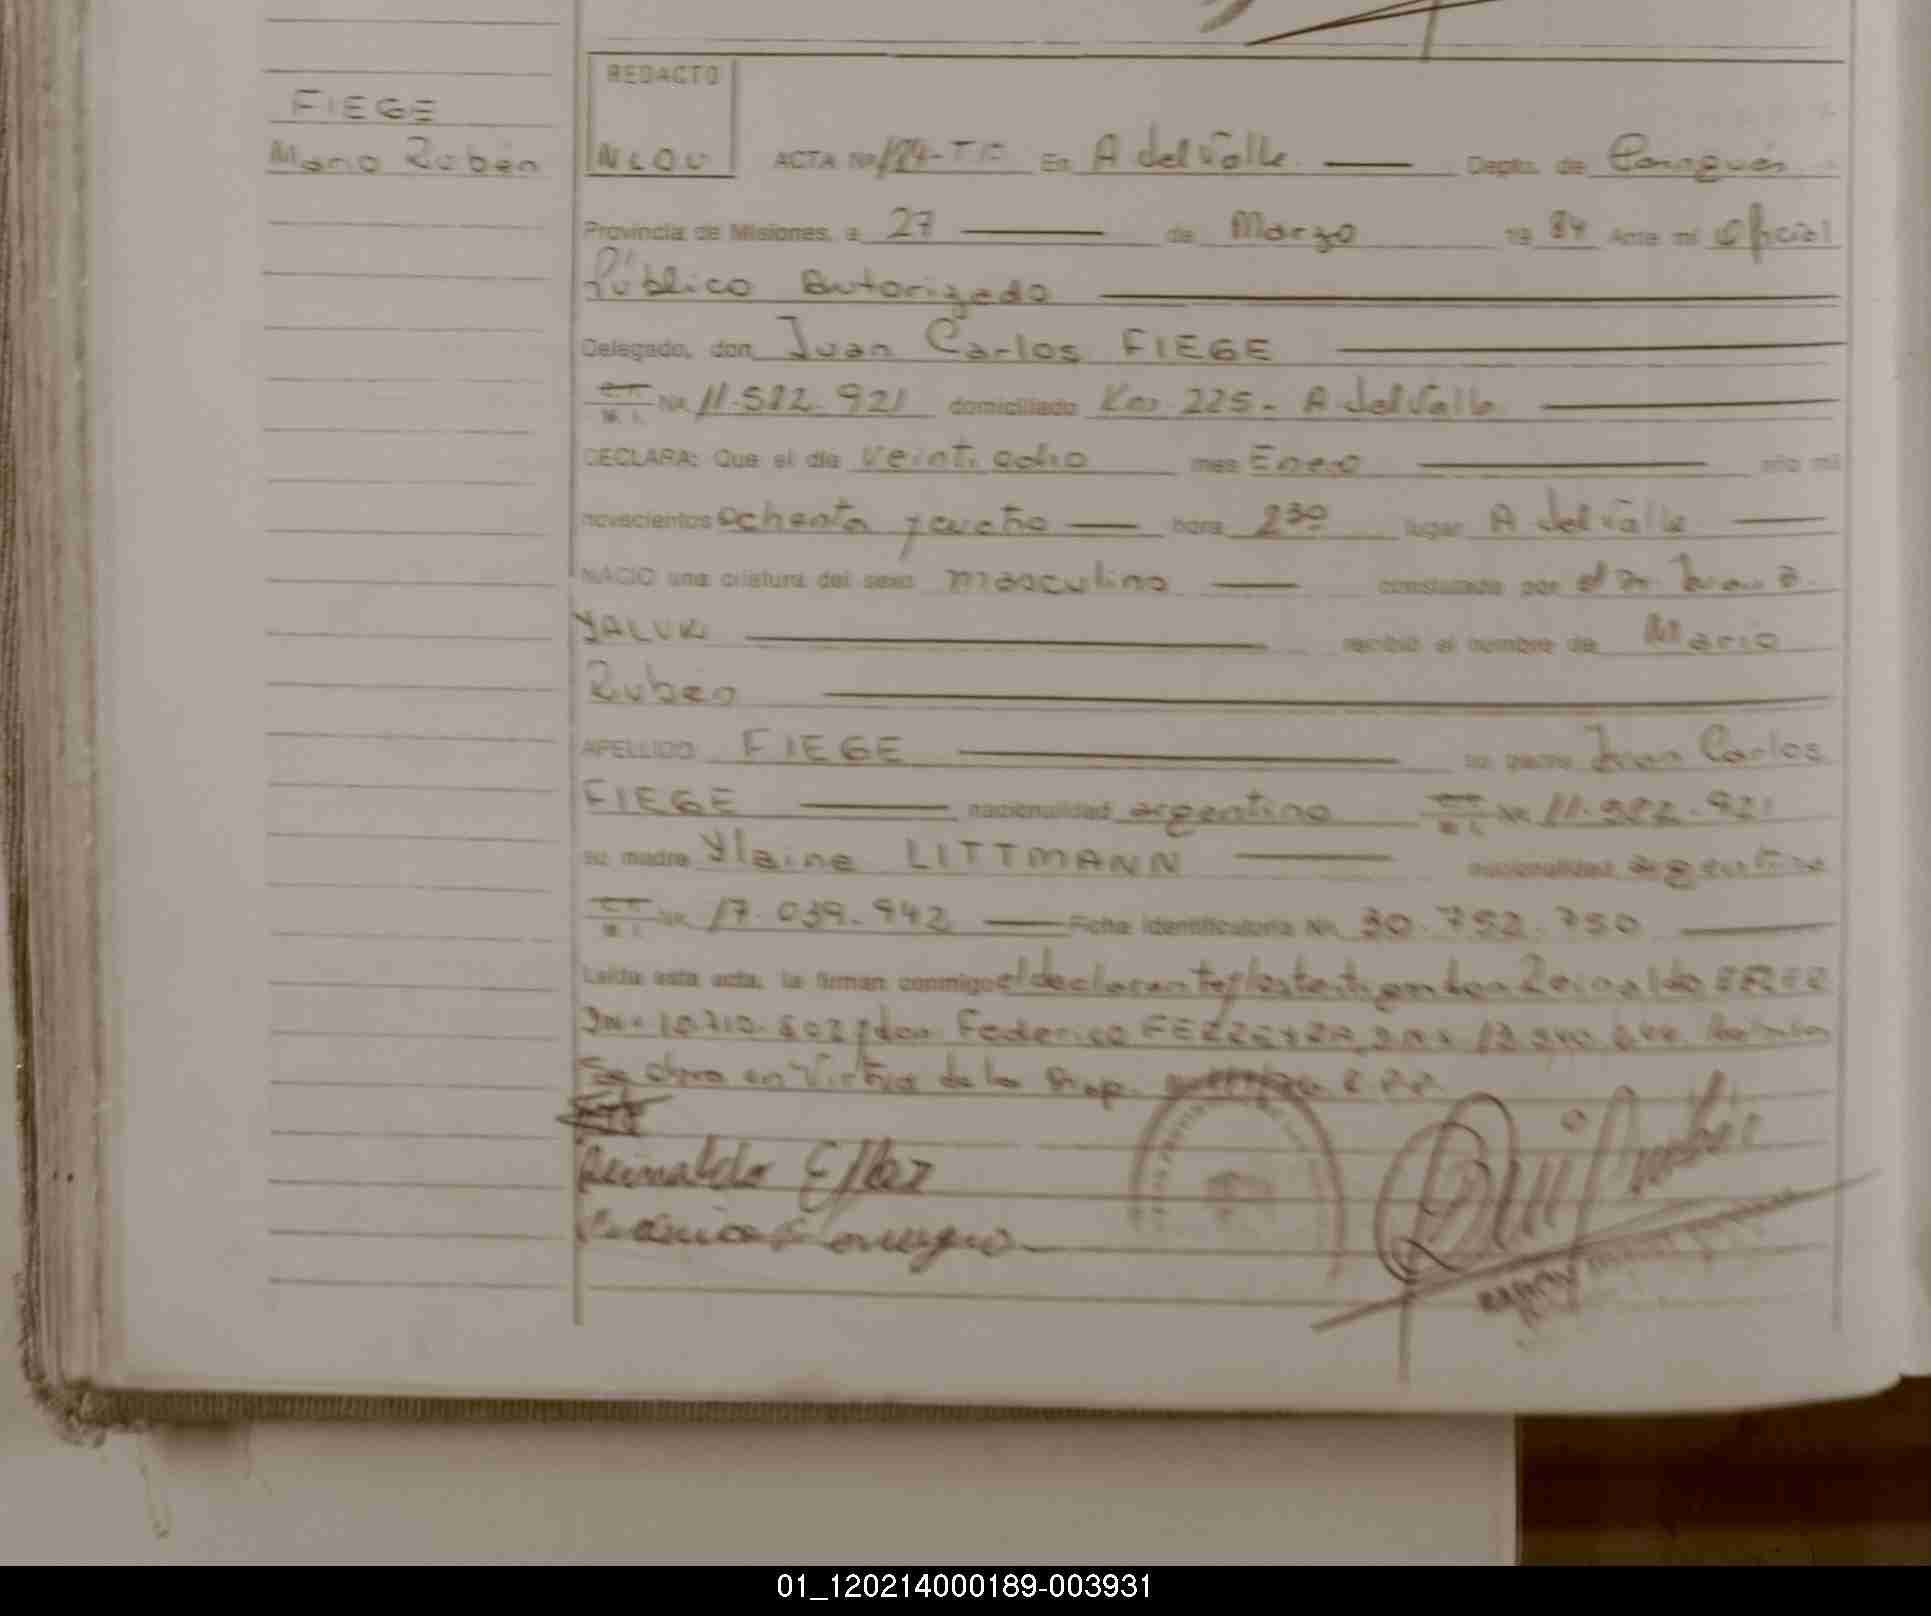 FIEGE
Mario Rubén
REDACTO
NLQU
ACTA Nº 124-TF En A del Valle Depto. de Cainguás
Provincia de Misiones, a 27 de Marzo 19 84 Ante mi Oficial
Público Autorizado
Delegado, don Juan Carlos FIEGE
Nº 11.582.921 domiciliado Km 225 - A del Valle
DECLARA: Que el día veintiocho mes Enero año mil
novecientos ochenta y cuatro hora 2 30 lugar A del Valle
NACIO una criatura del sexo masculino constatado por el Dr.
YALUK recibió el nombre de Mario
Ruben
APELLIDO FIEGE su padre Juan Carlos
FIEGE nacionalidad argentino M. I. Nº 11.582.921
su madre Ylaine LITTMANN nacionalidad argentina
Nº 17.039.942 Ficha Identificatoria Nº 30.752.750
Leída esta acta, la firman conmigo el declarante y los testigos don Reinaldo
don Federico
Se obra en Virtud de la Disp.
Reinaldo
01_120214000189-003931